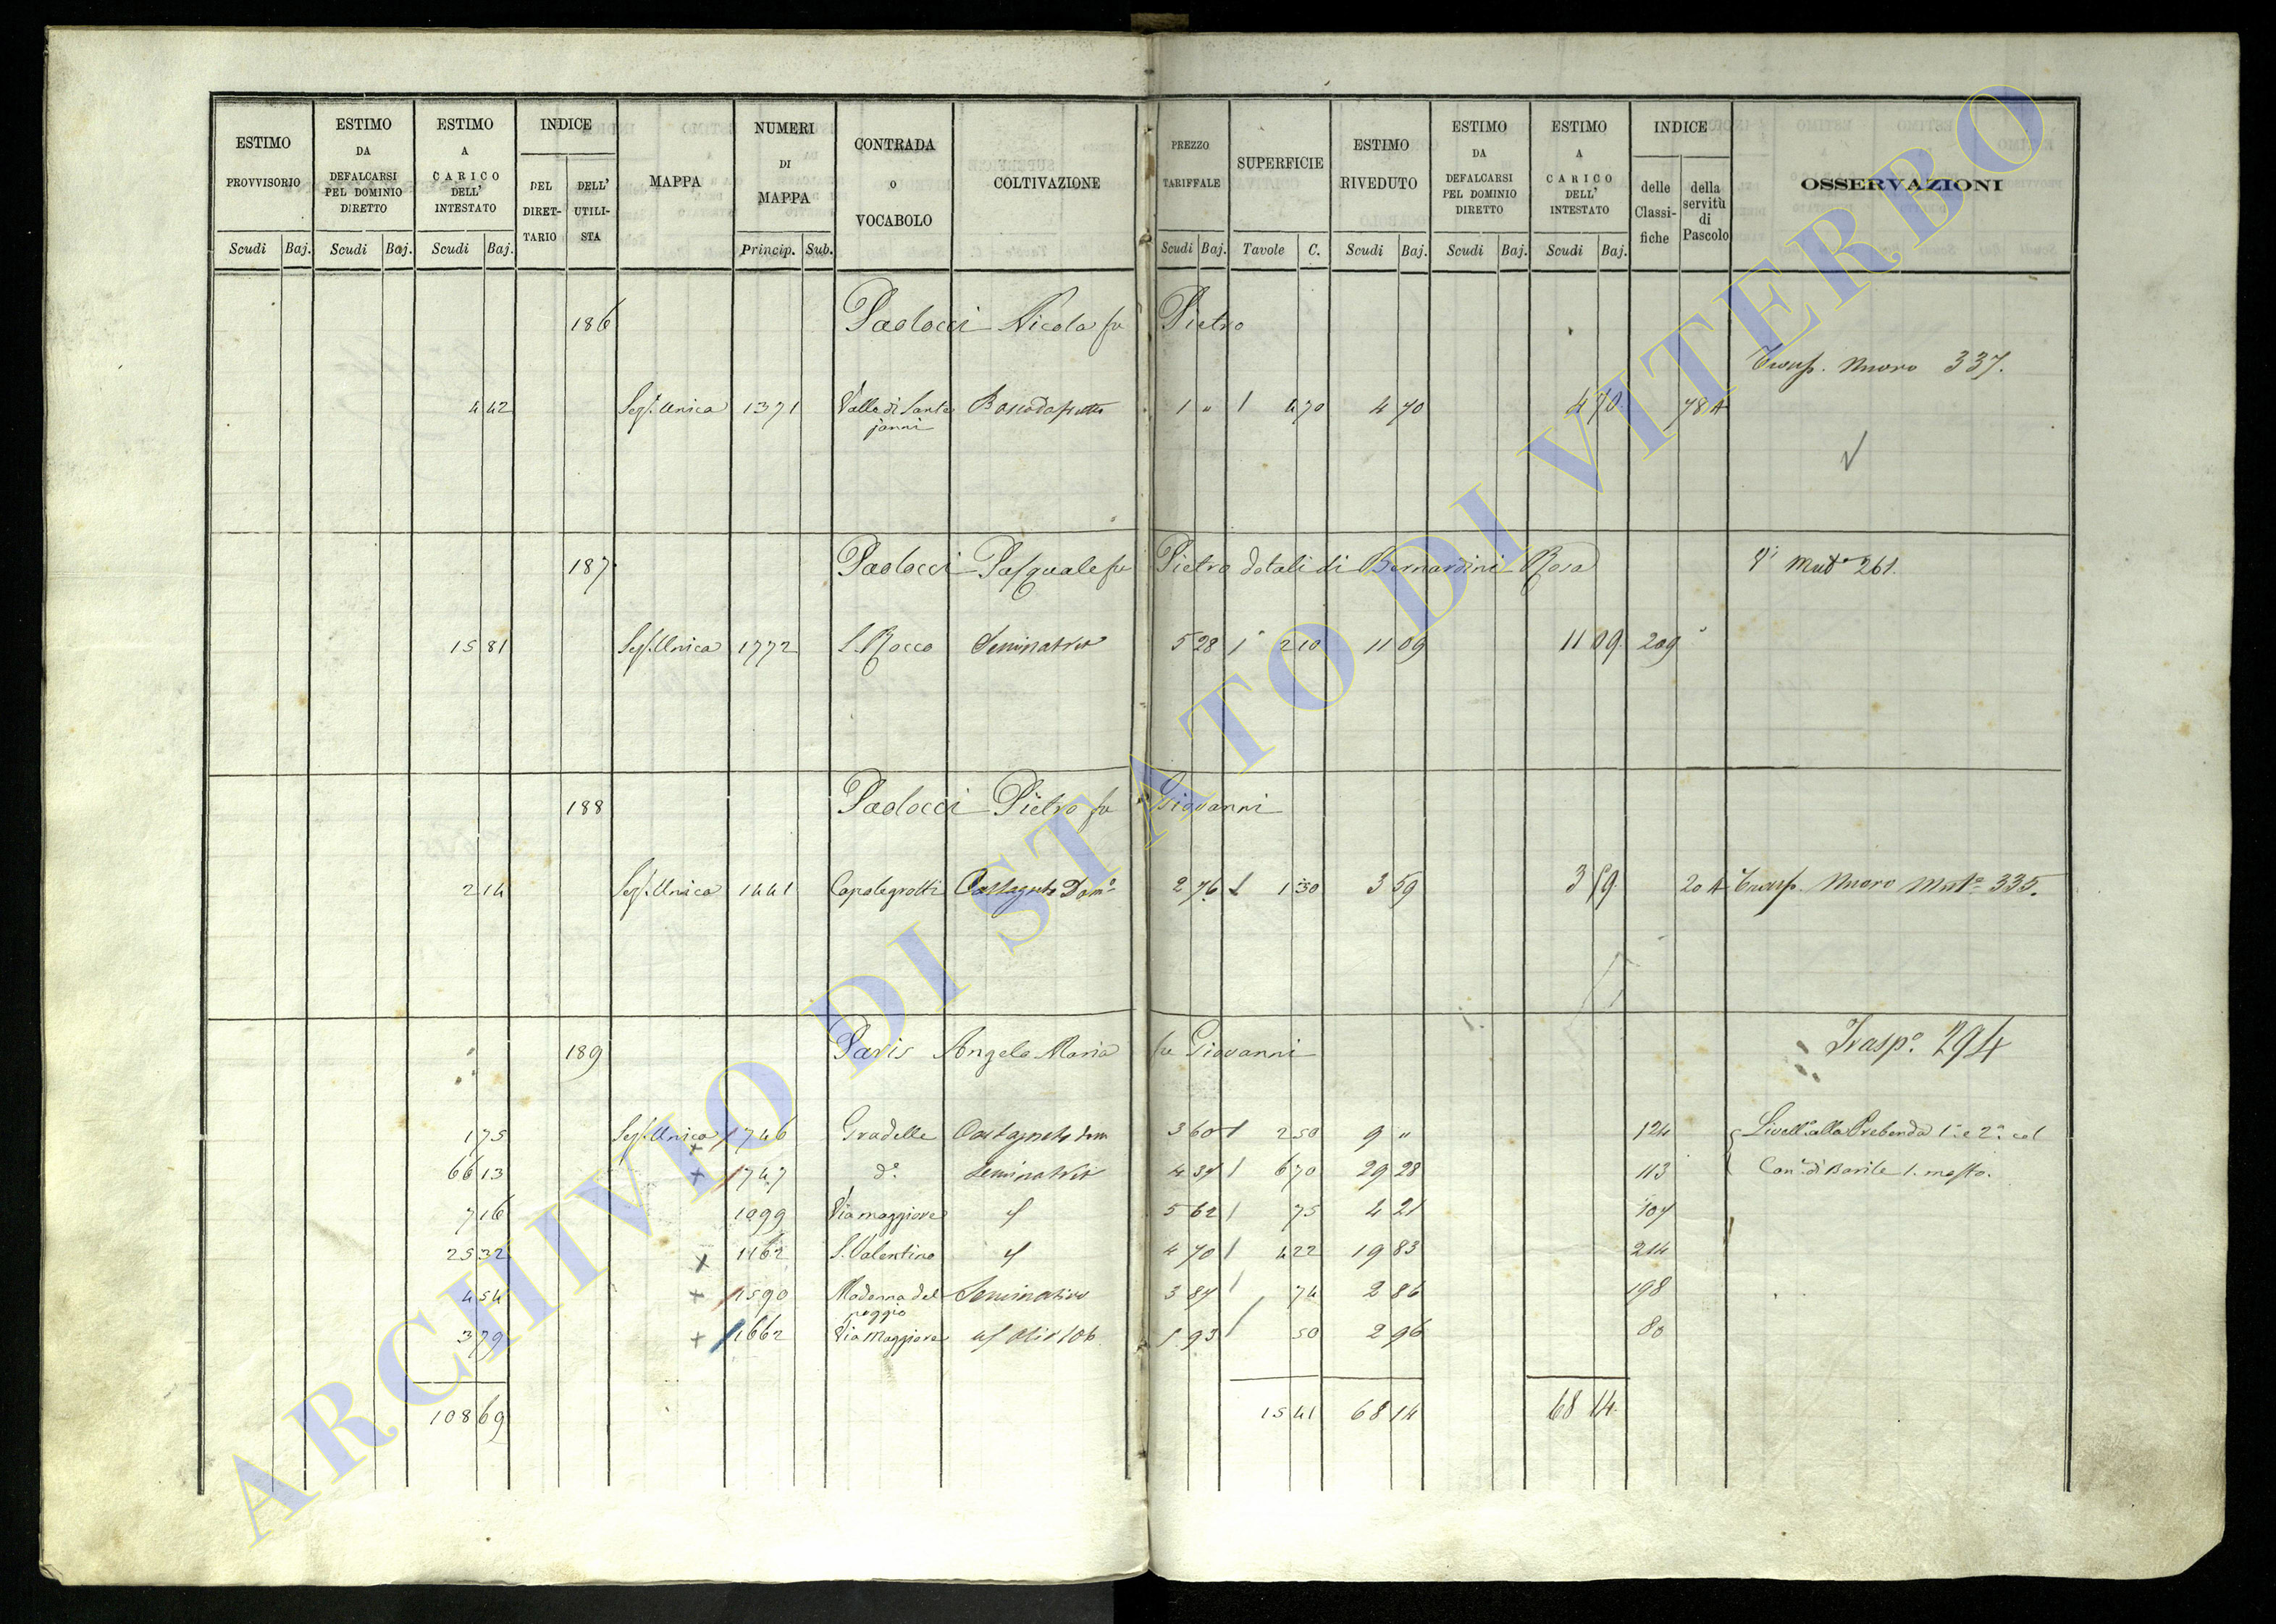 ESTIMO PROVVISORIO Scudi Baj. ESTIMO DA DEFALCARSI PEL DOMINIO DIRETTO Scudi Baj. ESTIMO A CARICO DELL' INTESTATO Scudi Baj. INDICE DEL DIRETTARIO DELL' UTILISTA MAPPA NUMERI DI MAPPA Princip. Sub. CONTRADA O VOCABOLO COLTIVAZIONE PREZZO TARIFFALE Scudi Baj. SUPERFICIE Tavole C. ESTIMO RIVEDUTO Scudi Baj. ESTIMO DA DEFALCARSI PEL DOMINIO DIRETTO Scudi Baj. ESTIMO A CARICO DELL' INTESTATO Scudi Baj. INDICE delle Classifiche della servitù di Pascolo OSSERVAZIONI
186 Paolocci Nicola fu Pietro
Nuovo 337.
4 42 Sez. Unica 1371 Valle di Sante janni 1 " 4 70 4 70 4 70 78 A
187 Paolocci Pasquale fu Pietro dotali di Bernardini Rosa 261.
15 81 Sez. Unica 1772 S. Rocco Seminativo 5 28 2 10 11 09 11 09 209
188 Paolocci Pietro fu Giovanni
2 14 Sez. Unica 1441 Capolegrotti Castagneto Dom.º 2 76 1 30 3 59 3 59 20 A Nuovo 335.
189 Paris Angela Maria fu Giovanni Trasp.º 294
1 75 Sez. Unica 1746 Gradelle Castagneto dom 3 60 2 50 9 " 124 Livell.ª alla Prebenda 1.ª e 2.ª
66 13 1747 d.º Seminativo 4 37 6 70 29 28 113 Barile 1. mosto.
7 16 1099 Via maggiore 5 62 75 4 21 107
25 32 1162 S. Valentino 4 70 4 22 19 83 214
4 54 1590 Madonna del poggio Seminativo 3 87 74 2 86 198
3 79 1662 Via Maggiore 5 93 50 2 96 80
108 69 15 41 68 14 68 14
ARCHIVIO DI STATO DI VITERBO